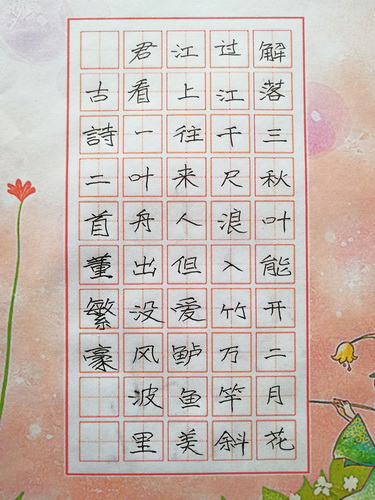 解落三秋叶能开二月花
过江千尺浪入竹万竿斜
江上往来人但爱鲈鱼美
君看一叶舟出没风波里
古詩二首董繁豪